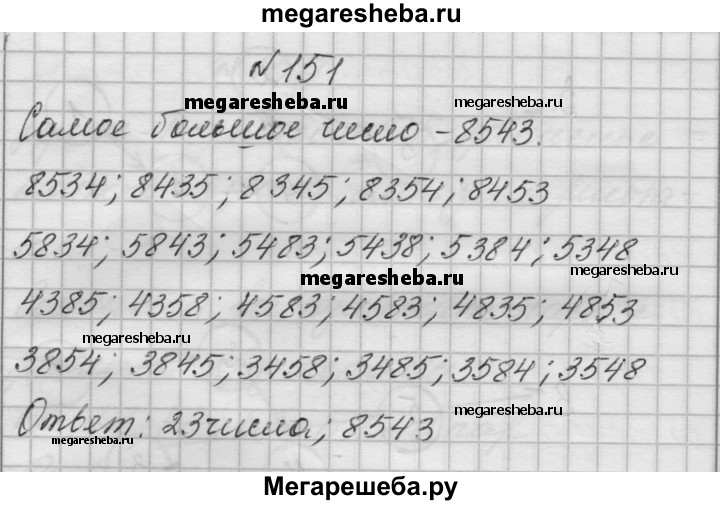 megaresheba.ru
№151
megaresheba.ru
megaresheba.ru
Самое большое число - 8543.
8534; 8435; 8345; 8354; 8453
5834; 5843; 5483; 5438; 5384; 5348
megaresheba.ru
megaresheba.ru
4385; 4358; 4583; 4583; 4835; 4853
megaresheba.ru
3854; 3845; 3458; 3485; 3584; 3548
megaresheba.ru
Ответ: 23 числа; 8543
megaresheba.ru
Мегарешеба.ру